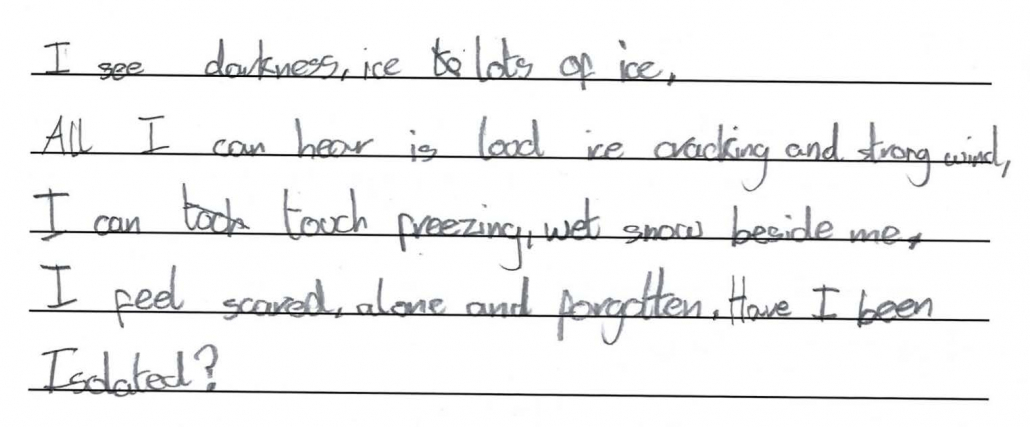 I see darkness, ice lots of ice,
All I can hear is lood ice cracking and strong wind,
I can touch freezing, wet snow beside me,
I feel scared, alone and forgotten. Have I been
Isolated?